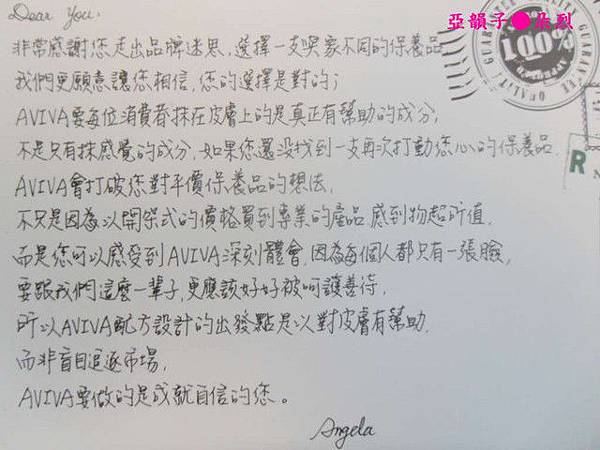 亞韻子●朵烈
Dear You.
非常感謝您走出品牌迷思，選擇一支與眾不同的保養品
我們更願意讓您相信，您的選擇是對的；
AVIVA要每位消費者抹在皮膚上的是真正有幫助的成分；
不是只有抹感覺的成分，如果您還沒找到一支再次打動您心的保養品，
AVIVA會打破您對平價保養品的想法，
不只是因為以開架式的價格買到專業的產品，感到物超所值，
而是您可以感受到AVIVA深刻體會，因為每個人都只有一張臉，
要跟我們這麼一輩子，更應該好好被呵護善待，
所以AVIVA配方設計的出發點是以對皮膚有幫助，
而非盲目追逐市場，
AVIVA要做的是成就自信的您。
Angela
100%
QUALITY GUARANTEE
R